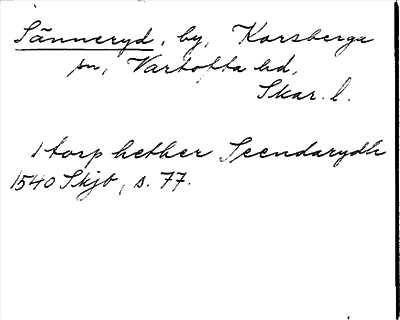 Sänneryd, by, Korsberga
sn, Vartofta hd,
Skar. l.
1 torp hether Seendarydh
1540 Skjb, s. 77.